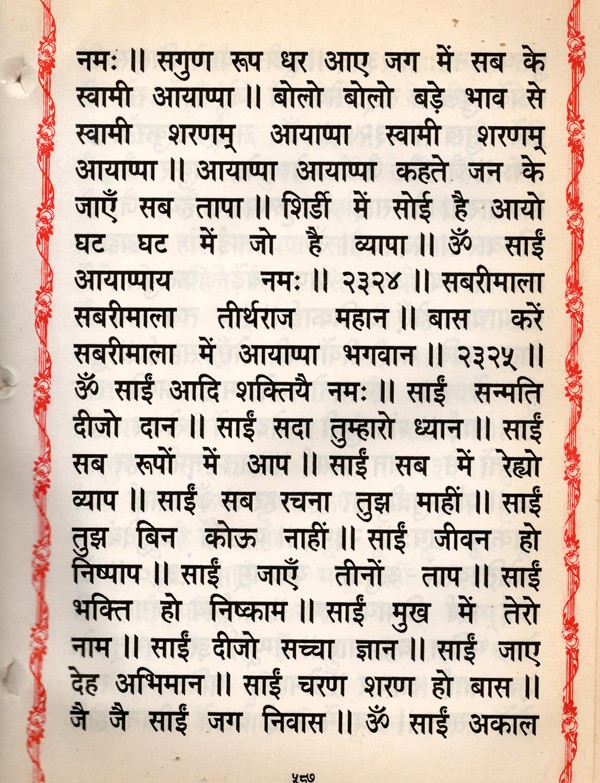 नमः ॥ सगुण रूप धर आए जग में सब के
स्वामी आयाप्पा ॥ बोलो बोलो बड़े भाव से
स्वामी शरणम् आयाप्पा स्वामी शरणम्
आयाप्पा ॥ आयाप्पा आयाप्पा कहते जन के
जाएँ सब तापा ॥ शिर्डी में सोई है आयो
घट घट में जो है व्यापा ॥ ॐ साईं
आयाप्पाय नमः ॥ २३२४ ॥ सबरीमाला
सबरीमाला तीर्थराज महान ॥ बास करें
सबरीमाला में आयाप्पा भगवान ॥ २३२५ ॥
ॐ साईं आदि शक्तियै नमः ॥ साईं सन्मति
दीजो दान ॥ साईं सदा तुम्हारो ध्यान ॥ साईं
सब रूपों में आप ॥ साईं सब में रेह्यो
व्याप ॥ साईं सब रचना तुझ माहीं ॥ साईं
तुझ बिन कोऊ नाहीं ॥ साईं जीवन हो
निष्पाप ॥ साईं जाएँ तीनों ताप ॥ साईं
भक्ति हो निष्काम ॥ साईं मुख में तेरो
नाम ॥ साईं दीजो सच्चा ज्ञान ॥ साईं जाए
देह अभिमान ॥ साईं चरण शरण हो बास ॥
जै जै साईं जग निवास ॥ ॐ साईं अकाल
५८७